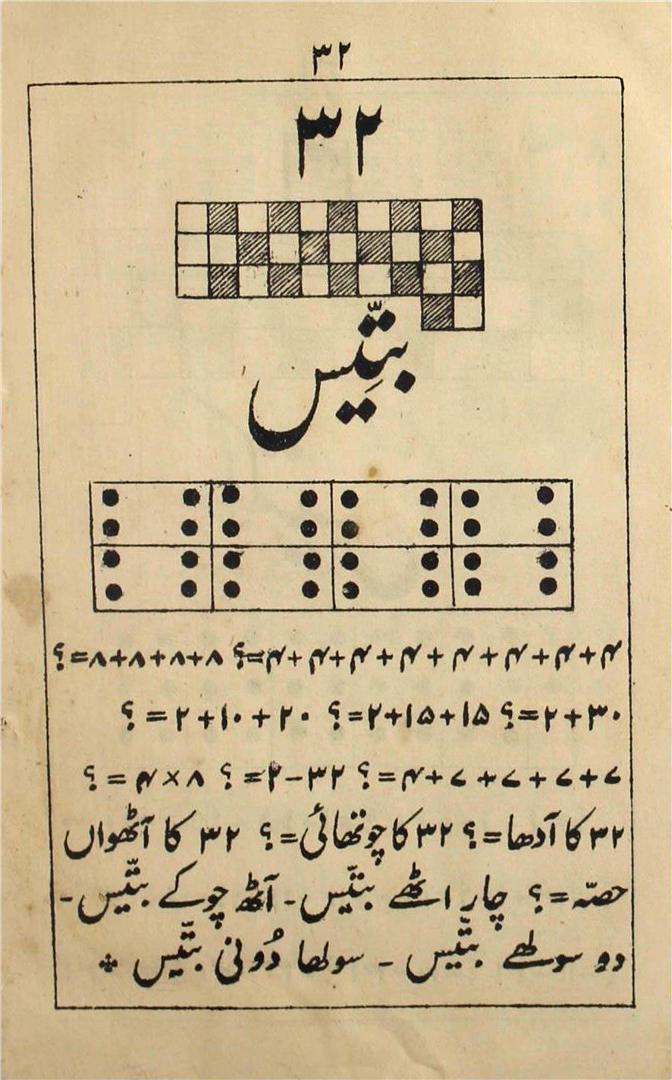 ۳۲
۳۲
بتّیس
۴+۴+۴+۴+۴+۴+۴+۴=؟ ۸+۸+۸+۸=؟
۳۰+۲=؟ ۱۵+۱۵+۲=؟ ۲۰+۱۰+۲=؟
۷+۷+۷+۷+۴=؟ ۳۲-۲=؟ ۸×۴=؟
۳۲ کا آدھا=؟ ۳۲ کا چوتھائی=؟ ۳۲ کا آٹھواں
حصّہ=؟ چار اٹھے بتّیس۔ آٹھ چوکے بتّیس۔
دو سولھے بتّیس ۔ سولھا دُونی بتّیس